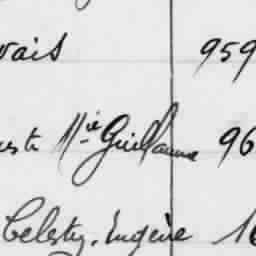 vais 959
uste Mie Guillaume 96
Celesty, Eugène 10